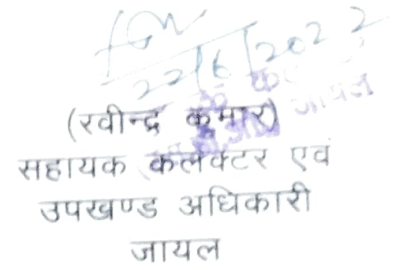 22/6/2022
(रवीन्द्र कुमार)
सहायक कलक्टर एवं
उपखण्ड अधिकारी
जायल